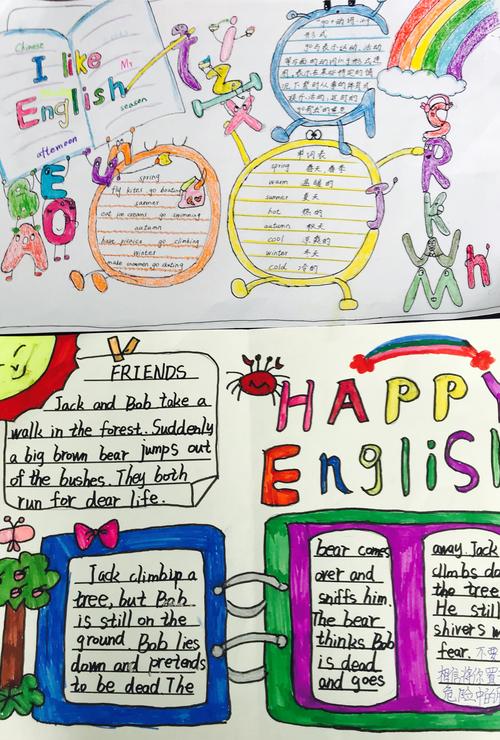 Chinese
I like
English
My
season
afternoon
"go+动词-ing
形式
spring
fly kites go boating
summer
eat ice creams go swimming
autumn
have picnics go climbing
winter
make snowmen go skating
单词表
spring 春天,春季
warm 温暖的
summer 夏天
hot 热的
autumn 秋天
cool 凉爽的
winter 冬天
cold 冷的
FRIENDS
Jack and Bob take a
walk in the forest. Suddenly
a big brown bear jumps out
of the bushes. They both
run for dear life.
HAPPY
English
Jack climbing a
tree, but Bob
is still on the
ground Bob lies
down and pretends
to be dead The
bear comes
over and
sniffs him.
The bear
thinks Bob
is dead
and goes
away. Jack
climbs do
the tree
He still
shivers
fear. 不要
相信将你置
危险中的